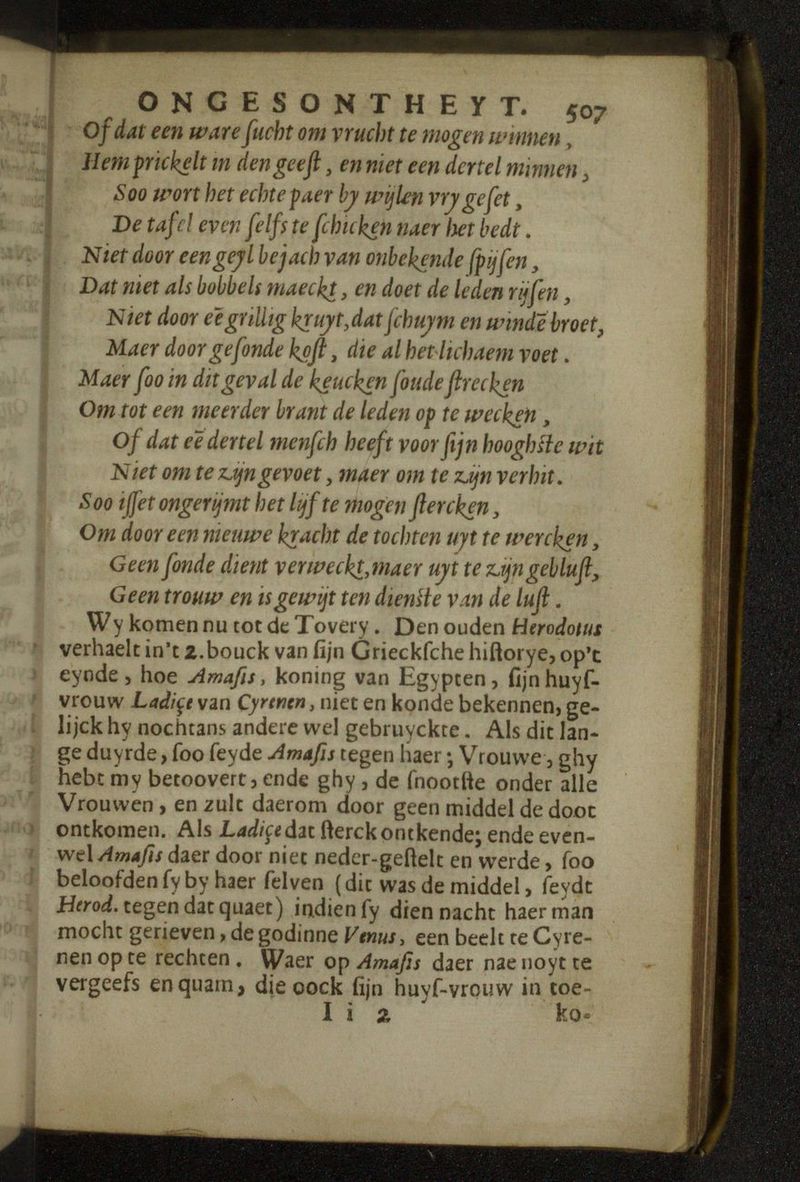 ONGESONTHEYT. 507
Of dat een ware ſucht om vrucht te mogen winnen,
Hem prickelt in den geeſt, en niet een dertel minnen,
Soo wort het echte paer by wijlen vry geſet,
De tafel even ſelfs te ſchicken naer het bedt.
Niet door een geyl bejach van onbekende ſpijſen,
Dat niet als bobbels maeckt, en doet de leden rijſen,
Niet door eē grillig kruyt, dat ſchuym en windē broet,
Maer door geſonde koſt, die al het lichaem voet.
Maer ſoo in dit geval de keucken ſoude ſtrecken
Om tot een meerder brant de leden op te wecken,
Of dat eē dertel menſch heeft voor ſijn hooghſte wit
Niet om te zijn gevoet, maer om te zijn verhit.
Soo iſſet ongerijmt het lijf te mogen ſtercken,
Om door een nieuwe kracht de tochten uyt te wercken,
Geen ſonde dient verweckt, maer uyt te zijn gebluſt,
Geen trouw en is gewijt ten dienſte van de luſt.
Wy komen nu tot de Tovery. Den ouden Herodotus
verhaelt in't 2. bouck van ſijn Grieckſche hiſtorye, op't
eynde, hoe Amaſis, koning van Egypten, ſijn huyſ-
vrouw Ladiçe van Cyrenen, niet en konde bekennen, ge-
lijck hy nochtans andere wel gebruyckte. Als dit lan-
ge duyrde, ſoo ſeyde Amaſis tegen haer; Vrouwe, ghy
hebt my betoovert, ende ghy, de ſnootſte onder alle
Vrouwen, en zult daerom door geen middel de doot
ontkomen. Als Ladiçe dat ſterck ontkende; ende even-
wel Amaſis daer door niet neder-geſtelt en werde, ſoo
beloofden ſy by haer ſelven (dit was de middel, ſeydt
Herod. tegen dat quaet) indien ſy dien nacht haer man
mocht gerieven, de godinne Venus, een beelt te Cyre-
nen op te rechten. Waer op Amaſis daer nae noyt te
vergeefs en quam, die oock ſijn huyſ-vrouw in toe-
Ii 2 ko-